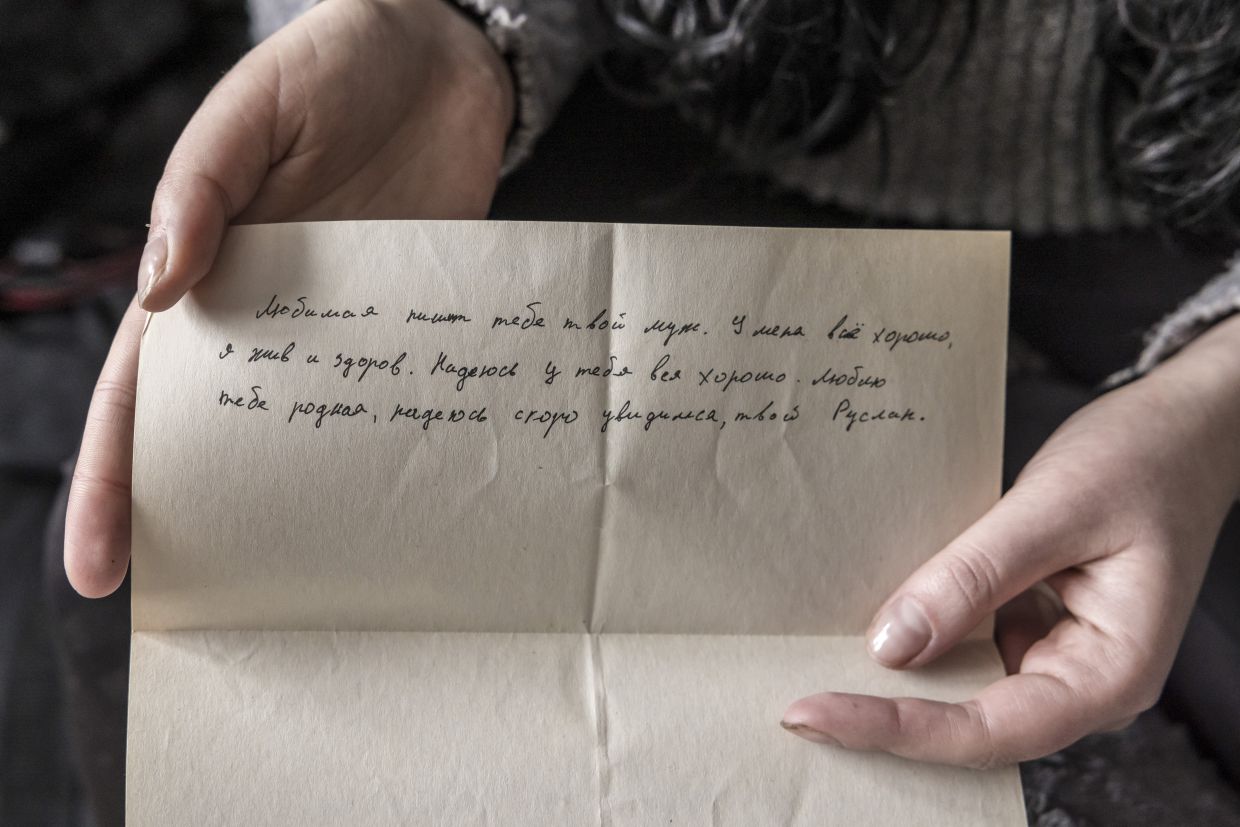 Любимая пишит тебе твой муж. У меня всё хорошо,
я жив и здоров. Надеюсь у тебя вся хорошо. Люблю
тебе родная, надеюсь скоро увидимся, твой Руслан.